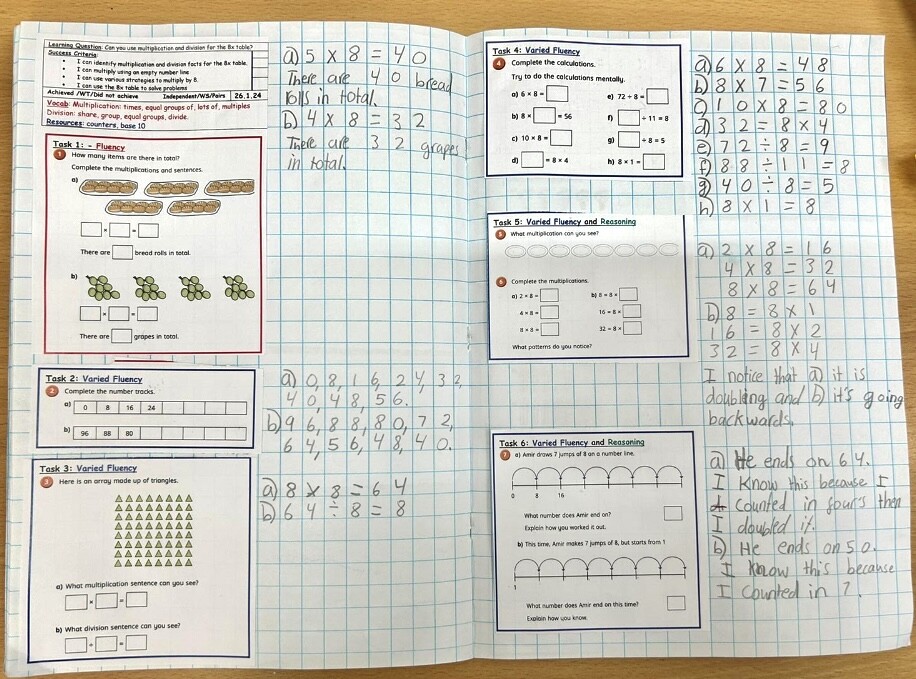 Learning Question: Can you use multiplication and division for the 8x table?
Success Criteria:
• I can identify multiplication and division facts for the 8x table.
• I can multiply using an empty number line
• I can use various strategies to multiply by 8.
• I can use the 8x table to solve problems
Achieved /WT/Did not achieve Independent/WS/Pairs 26.1.24
Vocab: Multiplication: times, equal groups of, lots of, multiples
Division: share, group, equal groups, divide.
Resources: counters, base 10
Task 1: - Fluency
1 How many items are there in total?
Complete the multiplications and sentences.
a)
× =
There are bread rolls in total.
b)
× =
There are grapes in total.
a) 5 × 8 = 40
There are 40 bread
rolls in total.
b) 4 × 8 = 32
There are 32 grapes
in total.
Task 2: Varied Fluency
2 Complete the number tracks.
a) 0 8 16 24
b) 96 88 80
a) 0, 8, 16, 24, 32,
40, 48, 56.
b) 96, 88, 80, 72,
64, 56, 48, 40.
Task 3: Varied Fluency
3 Here is an array made up of triangles.
a) What multiplication sentence can you see?
× =
b) What division sentence can you see?
÷ =
a) 8 × 8 = 64
b) 64 ÷ 8 = 8
Task 4: Varied Fluency
4 Complete the calculations.
Try to do the calculations mentally.
a) 6 × 8 = e) 72 ÷ 8 =
b) 8 × = 56 f) ÷ 11 = 8
c) 10 × 8 = g) ÷ 8 = 5
d) = 8 × 4 h) 8 × 1 =
a) 6 × 8 = 48
b) 8 × 7 = 56
c) 10 × 8 = 80
d) 32 = 8 × 4
e) 72 ÷ 8 = 9
f) 88 ÷ 11 = 8
g) 40 ÷ 8 = 5
h) 8 × 1 = 8
Task 5: Varied Fluency and Reasoning
5 What multiplication can you see?
6 Complete the multiplications.
a) 2 × 8 = b) 8 = 8 ×
4 × 8 = 16 = 8 ×
8 × 8 = 32 = 8 ×
What patterns do you notice?
a) 2 × 8 = 16
4 × 8 = 32
8 × 8 = 64
b) 8 = 8 × 1
16 = 8 × 2
32 = 8 × 4
I notice that a) it is
doubling and b) it's going
backwards.
Task 6: Varied Fluency and Reasoning
7 a) Amir draws 7 jumps of 8 on a number line.
0 8 16
What number does Amir end on?
Explain how you worked it out.
b) This time, Amir makes 7 jumps of 8, but starts from 1
1
What number does Amir end on this time?
Explain how you know.
a) He ends on 64.
I know this because I
counted in four's then
I doubled it.
b) He ends on 50.
I know this because
I counted in 7.